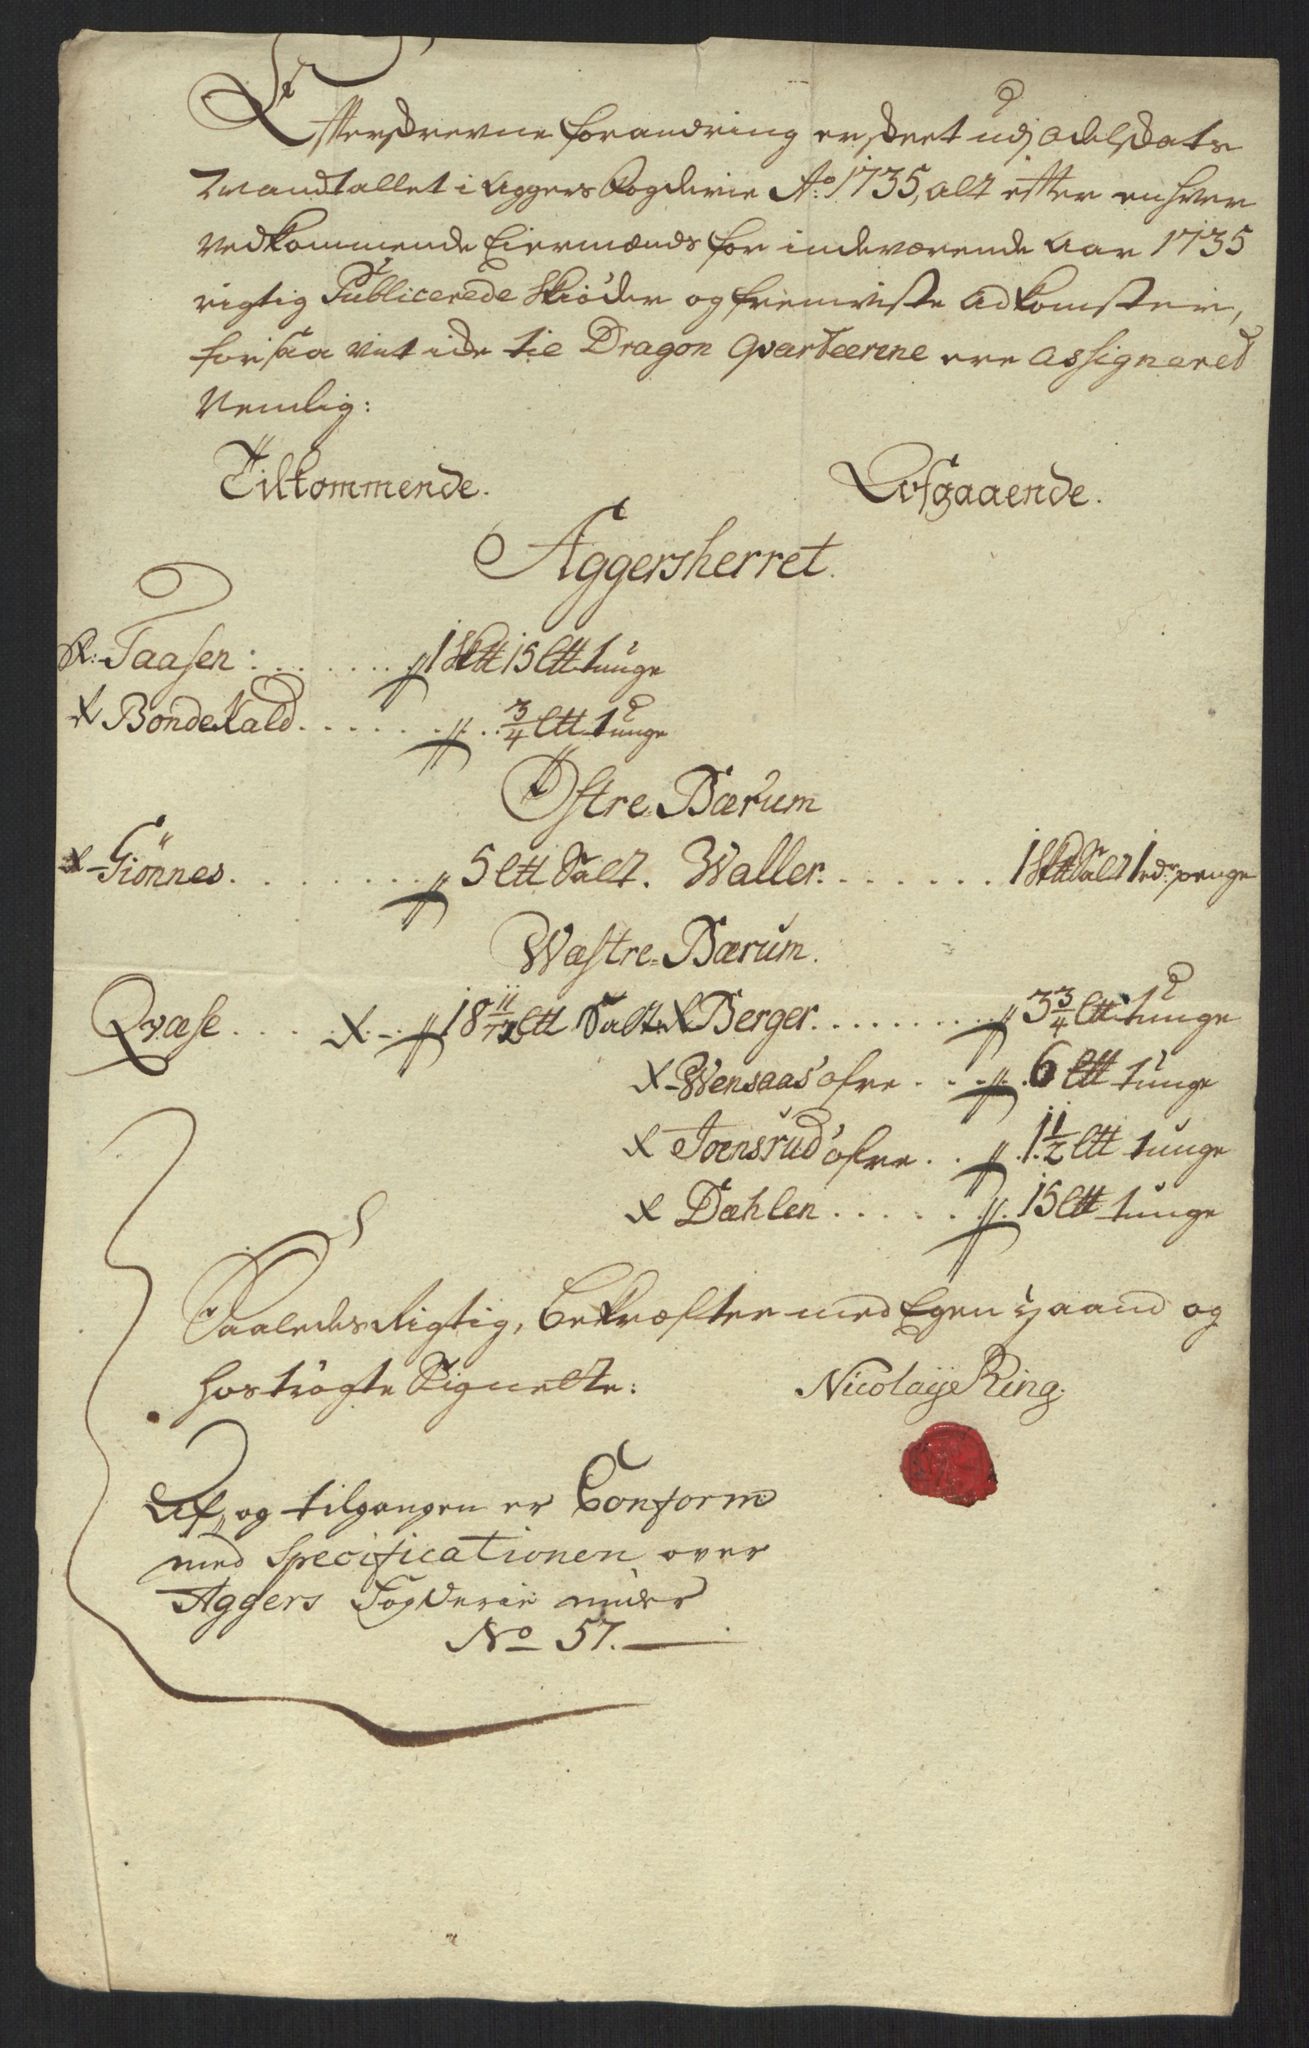 Efterskrevne forandring er skeet udj Odelskats
Mandtallet i Aggers Fogderie Ao: 1735, alt efter enhver
vedkommende Eiermænds for indeværende Aar 1735
rigtig Publicerede Skiøder og fremviste Adkomster,
forsaavit icke til Dragon Qvarteerene ere Assignered
Nemlig:
Tilkommende. Avfgaaende.
Aggersherret.
Taasen: . . . . . . . 1 Sk℔ 15 l℔ tunge
X Bondekald. . . . . . . . 3/4 l℔ tunge
Østre-Bærum
X Giønnes. . . . . . . . . 5 l℔ Salt. Waller. . . . . . . 1 Sk℔ Salt 1  edr. penge
Wæstre-Bærum.
Qvæse. . . . . X - 18 11/12 l℔ Salt. X Berger. . . . . . . . . . 3 3/4 l℔ tunge
X Wensaas øfre . . . . . 6 l℔ tunge
X Joensrud øfre . . . 1 1/2 l℔ tunge
X Dæhlen . . . . . . . 15 l℔ tunge
Saaledes Rigtig, bekræfter med Egen Haand og
hoströgte Signette: Nicolaye Ring.
Af, og tilgangen er Conform
med Specificationen over
Aggers Fogderie under
No 57.